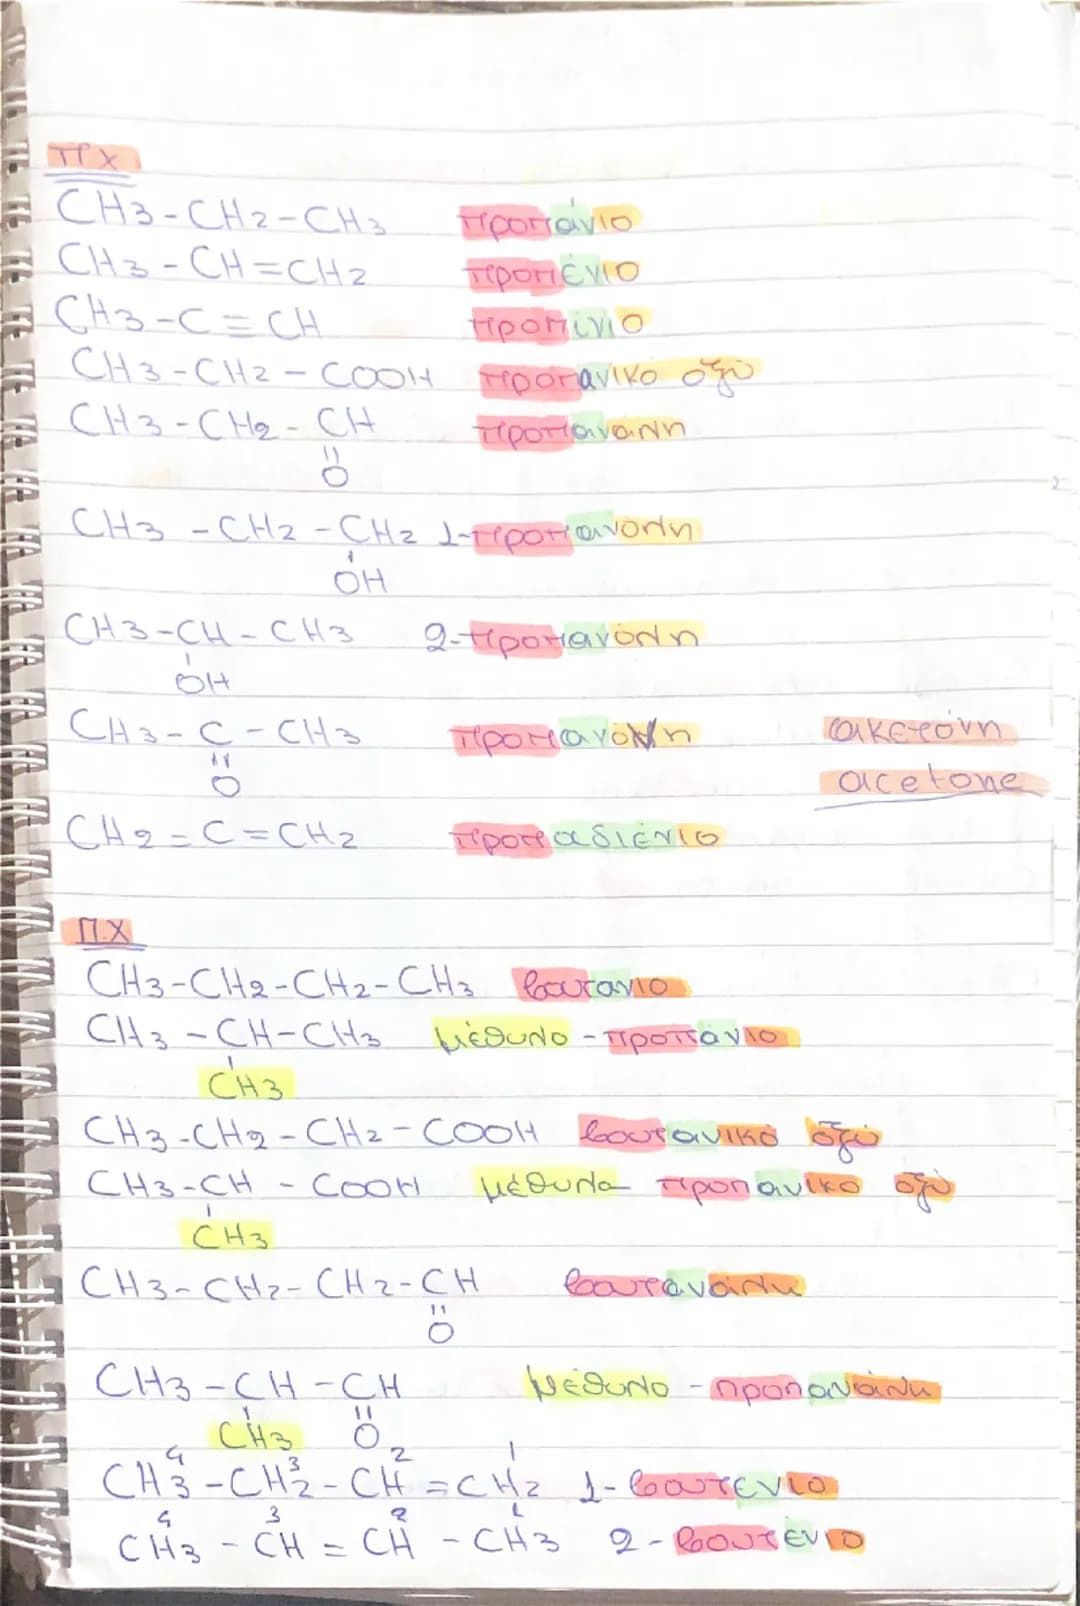 ΠΧ
CH3-CH2-CH3 προπάνιο
CH3-CH=CH2 προπένιο
CH3-C≡CH προπίνιο
CH3-CH2-COOH προπανικό οξύ
CH3-CH2-CH προπανάλη
=
O
CH3-CH2-CH2 1-προπανόλη
OH
CH3-CH-CH3 2-προπανόλη
OH
CH3-C-CH3 προπανόνη ακετόνη
=
O acetone
CH2=C=CH2 προπαδιένιο
Π.Χ
CH3-CH2-CH2-CH3 βουτανιο
CH3-CH-CH3 μέθυλο-προπάνιο
CH3
CH3-CH2-CH2-COOH βουτανικό οξύ
CH3-CH-COOH μέθυλο προπανικο οξύ
CH3
CH3-CH2-CH2-CH βουτανάλη
=
O
CH3-CH-CH μέθυλο-προπανάλη
CH3 O
4 3 2 1
CH3-CH2-CH=CH2 1-βουτενιο
4 3 2 1
CH3-CH=CH-CH3 2-βουτένιο